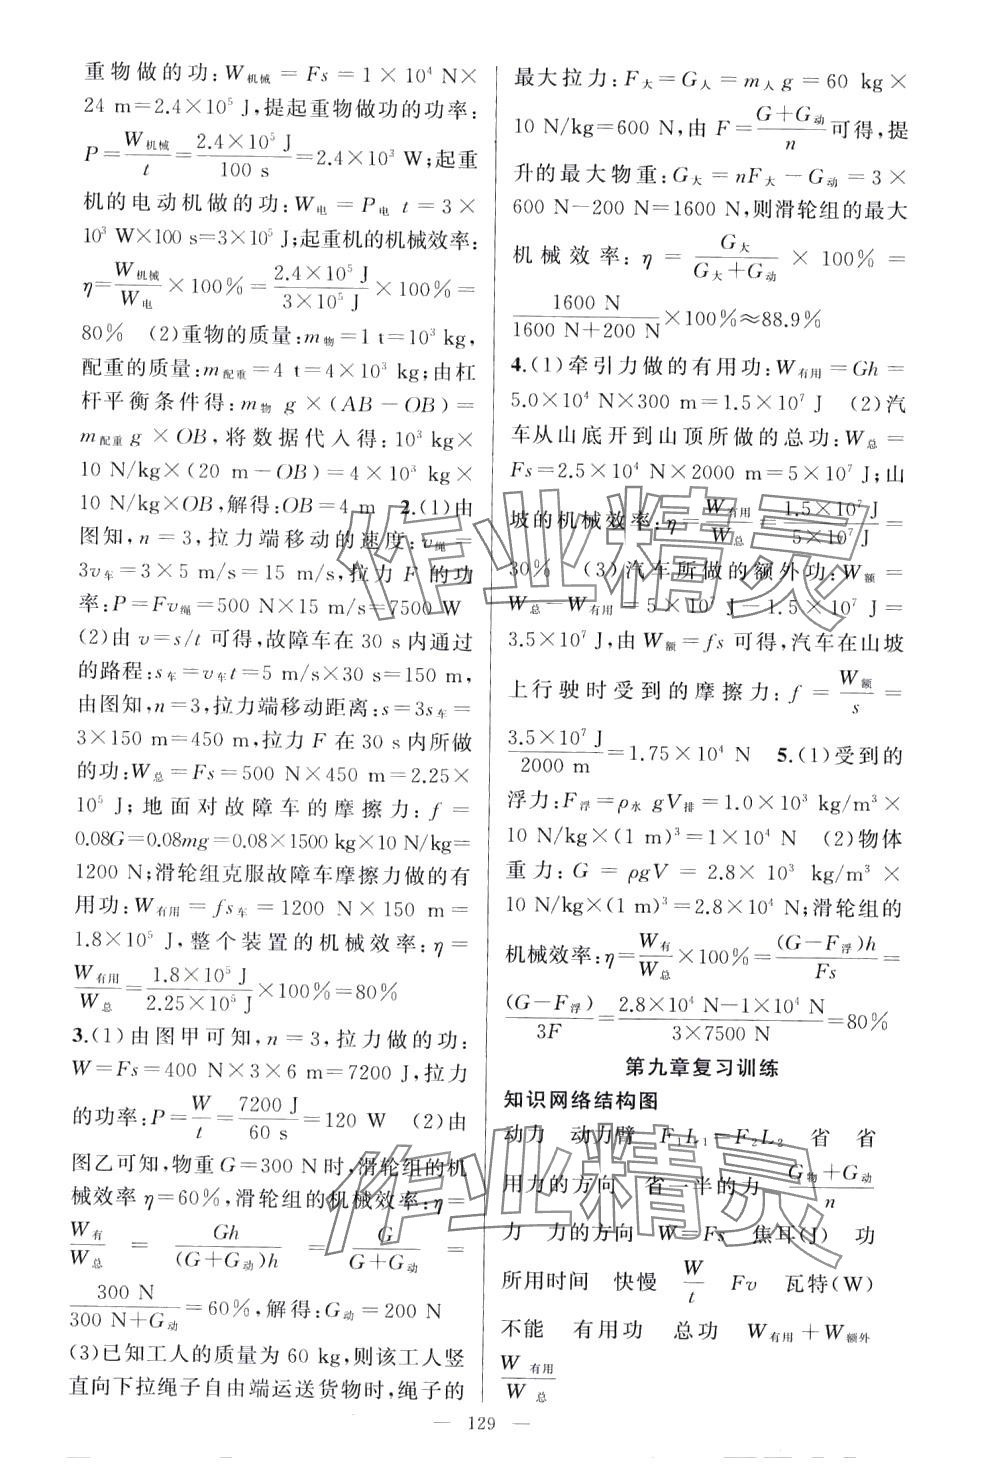 重物做的功:W机械=Fs=1×10⁴ N×
24 m=2.4×10⁵ J,提起重物做功的功率:
P=W机械/t=2.4×10⁵ J/100 s=2.4×10³ W;起重
机的电动机做的功:W电=P电 t=3×
10³ W×100 s=3×10⁵ J;起重机的机械效率:
η=W机械/W电×100%=2.4×10⁵ J/3×10⁵ J×100%=
80% (2)重物的质量:m物=1 t=10³ kg,
配重的质量:m配重=4 t=4×10³ kg;由杠
杆平衡条件得:m物 g×(AB-OB)=
m配重 g×OB,将数据代入得:10³ kg×
10 N/kg×(20 m-OB)=4×10³ kg×
10 N/kg×OB,解得:OB=4 m 2.(1)由
图知,n=3,拉力端移动的速度:v绳=
3v车=3×5 m/s=15 m/s,拉力 F 的功
率:P=Fv绳=500 N×15 m/s=7500 W
(2)由 v=s/t 可得,故障车在 30 s内通过
的路程:s车=v车t=5 m/s×30 s=150 m,
由图知,n=3,拉力端移动距离:s=3s车=
3×150 m=450 m,拉力 F 在 30 s内所做
的功:W总=Fs=500 N×450 m=2.25×
10⁵ J;地面对故障车的摩擦力:f=
0.08G=0.08mg=0.08×1500 kg×10 N/kg=
1200 N;滑轮组克服故障车摩擦力做的有
用功:W有用=fs车=1200 N×150 m=
1.8×10⁵ J,整个装置的机械效率:η=
W有用/W总=1.8×10⁵ J/2.25×10⁵ J×100%=80%
3.(1)由图甲可知,n=3,拉力做的功:
W=Fs=400 N×3×6 m=7200 J,拉力
的功率:P=W/t=7200 J/60 s=120 W (2)由
图乙可知,物重G=300 N时,滑轮组的机
械效率 η=60%,滑轮组的机械效率:η=
W有/W总=Gh/(G+G动)h=G/G+G动=
300 N/300 N+G动=60%,解得:G动=200 N
(3)已知工人的质量为 60 kg,则该工人竖
直向下拉绳子自由端运送货物时,绳子的
最大拉力:F大=G人=m人 g=60 kg×
10 N/kg=600 N,由 F=G+G动/n可得,提
升的最大物重:G大=nF大-G动=3×
600 N-200 N=1600 N,则滑轮组的最大
机械效率:η=G大/G大+G动×100%=
1600 N/1600 N+200 N×100%≈88.9%
4.(1)牵引力做的有用功:W有用=Gh=
5.0×10⁴ N×300 m=1.5×10⁷ J (2)汽
车从山底开到山顶所做的总功:W总=
Fs=2.5×10⁴ N×2000 m=5×10⁷ J;山
坡的机械效率:η=W有用/W总=1.5×10⁷ J/5×10⁷ J=
30% (3)汽车所做的额外功:W额=
W总-W有用=5×10⁷ J-1.5×10⁷ J=
3.5×10⁷ J,由 W额=fs 可得,汽车在山坡
上行驶时受到的摩擦力:f=W额/s=
3.5×10⁷ J/2000 m=1.75×10⁴ N 5.(1)受到的
浮力:F浮=ρ水 gV排=1.0×10³ kg/m³×
10 N/kg×(1 m)³=1×10⁴ N (2)物体
重力:G=ρgV=2.8×10³ kg/m³×
10 N/kg×(1 m)³=2.8×10⁴ N;滑轮组的
机械效率:η=W有/W总×100%=(G-F浮)h/Fs=
(G-F浮)/3F=2.8×10⁴ N-1×10⁴ N/3×7500 N=80%
第九章复习训练
知识网络结构图
动力 动力臂 F₁L₁=F₂L₂ 省 省
用力的方向 省一半的力 G物+G动/n
力 力的方向 W=Fs 焦耳(J) 功
所用时间 快慢 W/t Fv 瓦特(W)
不能 有用功 总功 W有用+W额外
W有用/W总
— 129 —
作业精灵
作业精灵